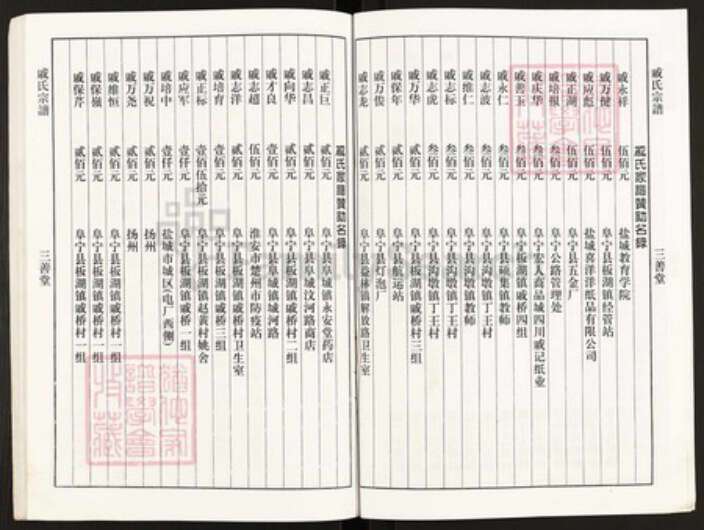 戚氏宗譜
三善堂
戚氏家譜贊助名錄
戚永祥 伍佰元 盐城教育学院
戚万健 伍佰元 阜宁县板湖镇经管站
戚应彪 伍佰元 盐城喜洋洋纸品有限公司
戚正湖 伍佰元 阜宁县五金厂
戚培根 叁佰元 阜宁公路管理处
戚庆华 叁佰元 阜宁宏人商品城四川戚记纸业
戚善玉 叁佰元 阜宁板湖镇戚桥四组
戚永仁 叁佰元 阜宁县硕集镇教师
戚志波 叁佰元 阜宁县沟墩镇丁王村
戚维仁 叁佰元 阜宁县沟墩镇教师
戚志标 叁佰元 阜宁县沟墩镇丁王村
戚志虎 叁佰元 阜宁县沟墩镇丁王村
戚万华 贰佰元 阜宁县板湖镇戚桥村三组
戚保年 贰佰元 阜宁县航运站
戚万俊 贰佰元 阜宁县灯泡厂
戚志龙 贰佰元 阜宁县益林镇解放路卫生室
戚氏家譜贊助名錄
戚正巨 贰佰元 阜宁县阜城镇永安堂药店
戚志昌 贰佰元 阜宁县阜城汶河路商店
戚向华 贰佰元 阜宁县板湖镇戚桥村二组
戚才良 壹佰元 阜宁县阜城镇城河路
戚志超 贰佰元 淮安市楚州市防疫站
戚志洋 伍佰元 阜宁县板湖镇戚桥村卫生室
戚培育 贰佰元 阜宁县板湖镇戚桥三组
戚正标 壹佰伍拾元 阜宁县板湖镇赵黄村姚舍
戚应军 壹仟元 阜宁县板湖镇戚桥一组
戚培中 壹仟元 盐城市城区(电厂西侧)
戚万祝 贰佰元 扬州
戚万尧 贰佰元 扬州
戚维恒 贰佰元 阜宁县板湖镇戚桥村一组
戚保嶺 贰佰元 阜宁县板湖镇戚桥村一组
戚保芹 贰佰元 阜宁县板湖镇戚桥村一组
戚氏宗譜
三善堂